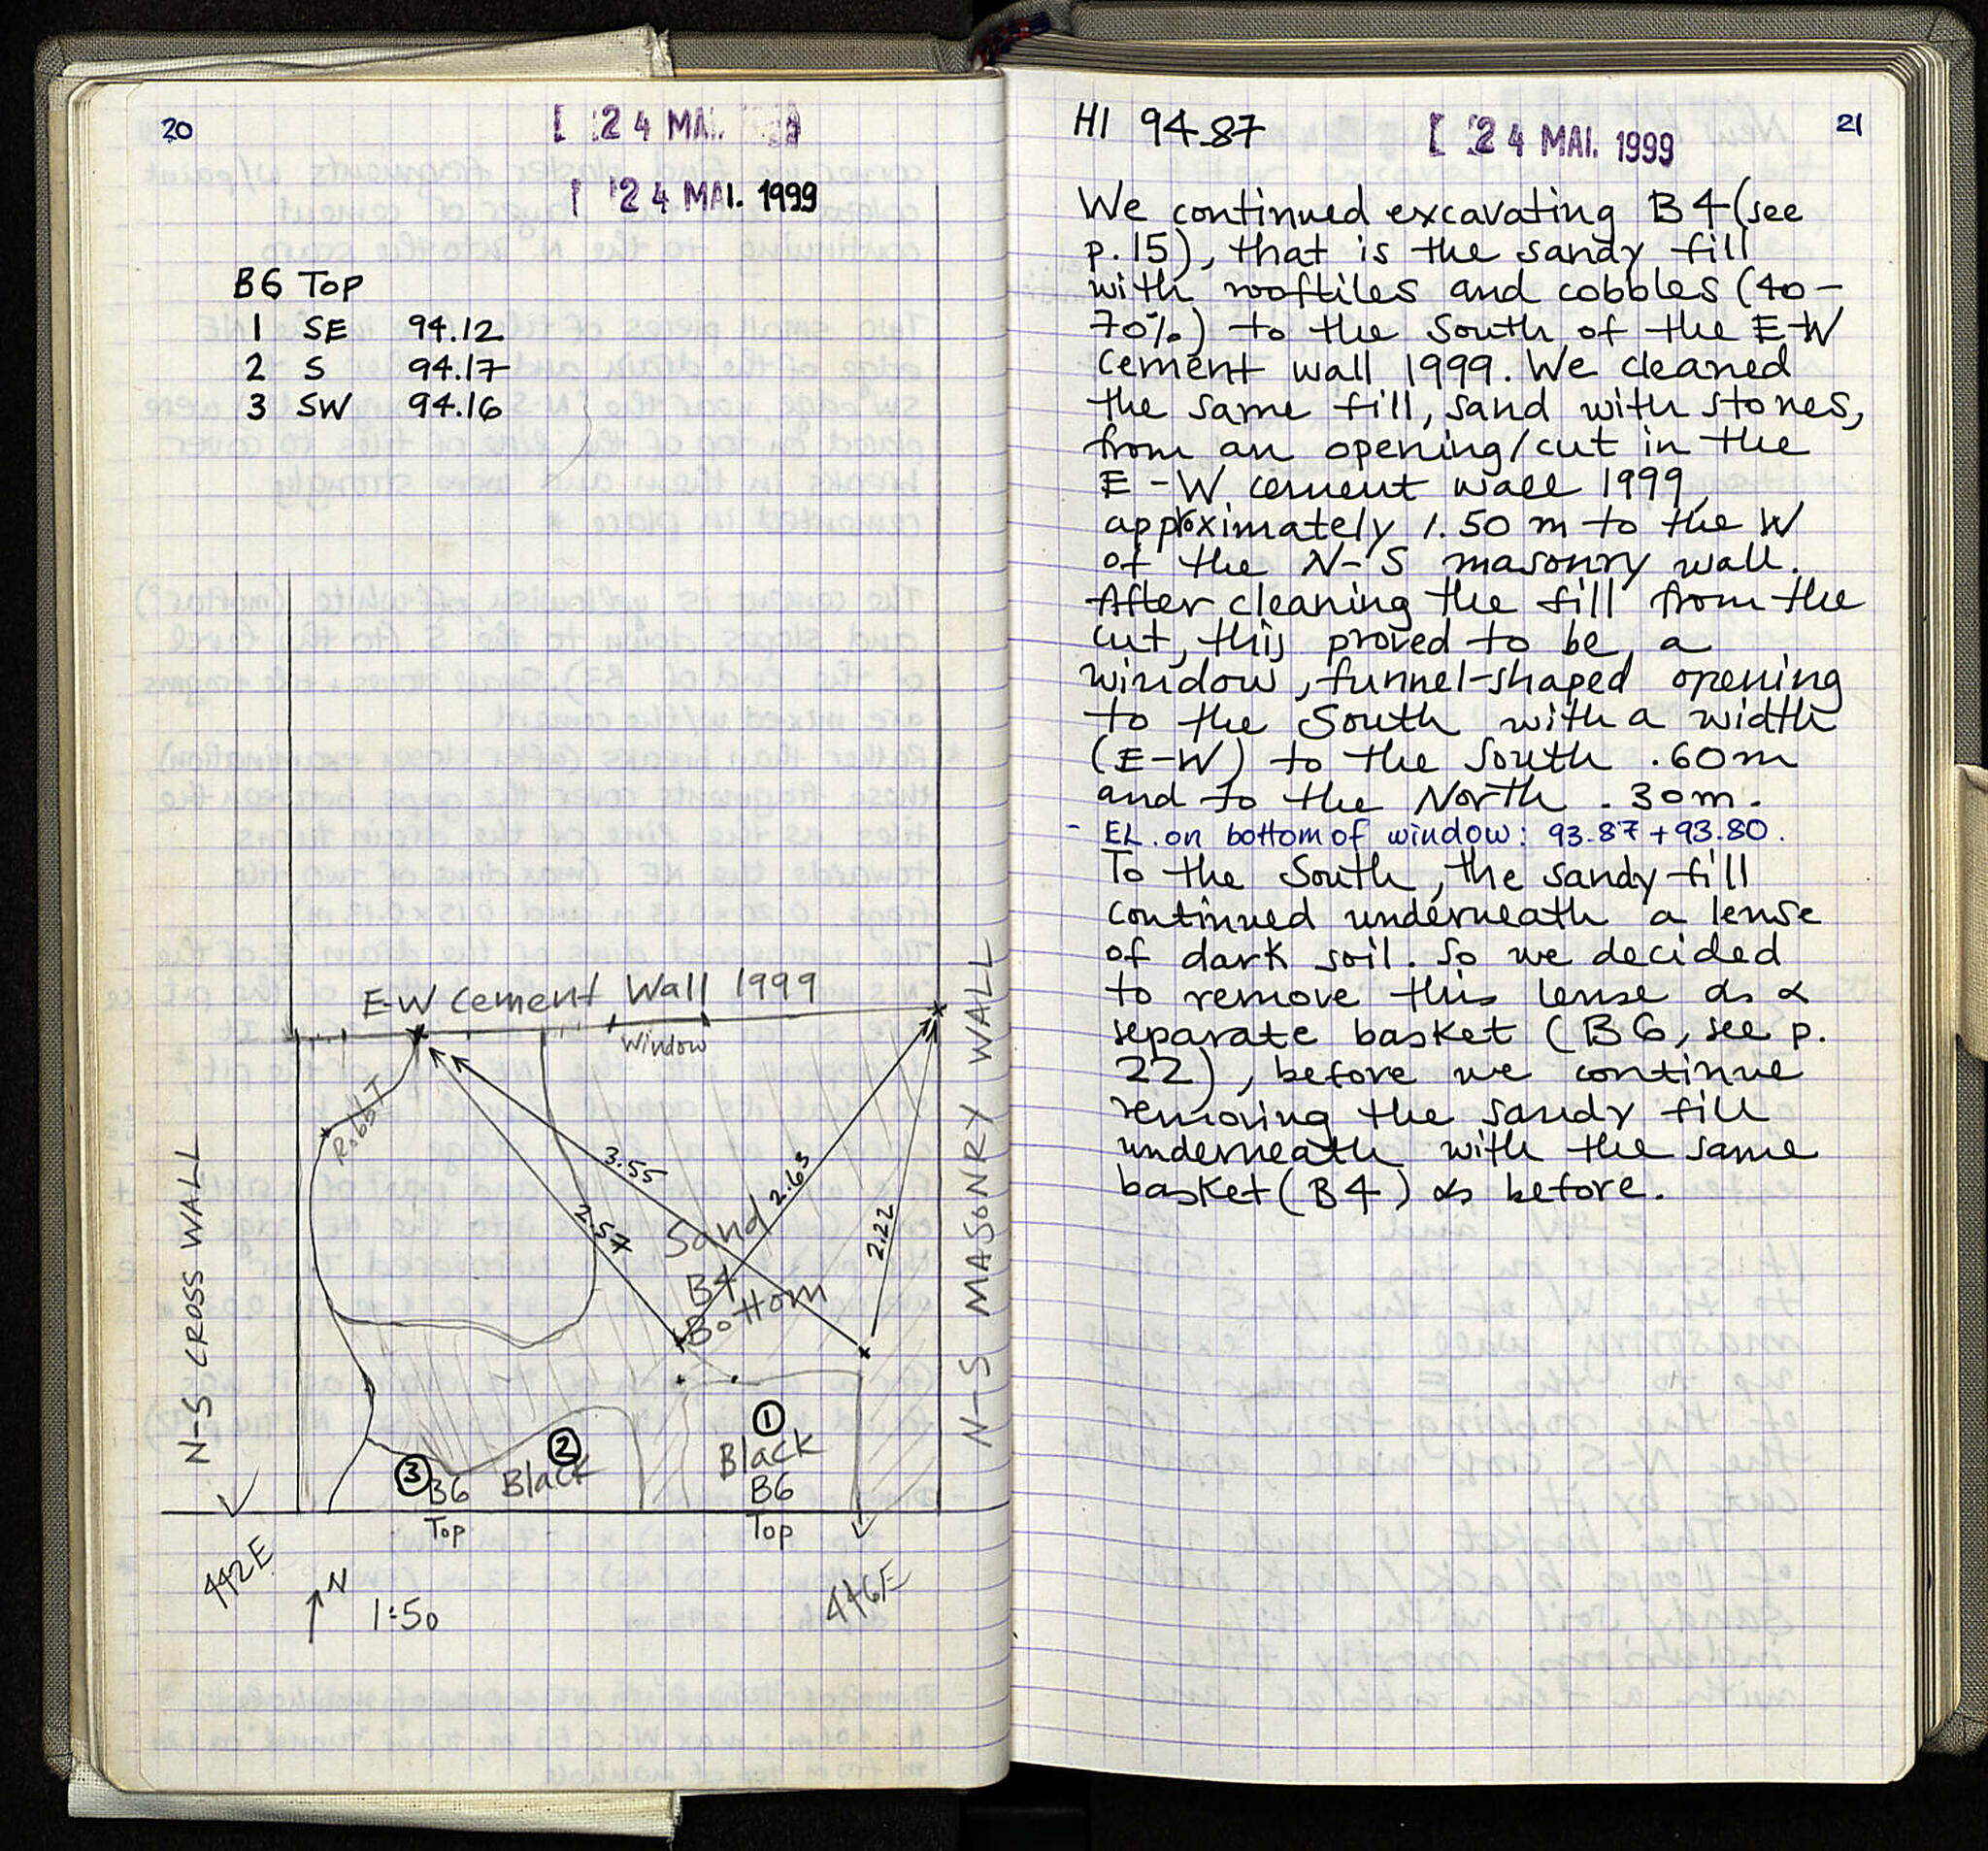 20
24 MAI.
24 MAI. 1999
B6 Top
1 SE 94.12
2 S 94.17
3 SW 94.16
E-W Cement Wall 1999
Window
Robb T
3.55
2.63
2.54
2.22
Sand
B4
Bottom
N-S CROSS WALL
N-S MASONRY WALL
1
Black
B6
Top
2
Black
3
B6
Top
442E
446E
N
1:50
HI 94.87
24 MAI. 1999
21
We continued excavating B4 (see
p. 15), that is the sandy fill
with rooftiles and cobbles (40-
70%) to the South of the E-W
cement wall 1999. We cleaned
the same fill, sand with stones,
from an opening/cut in the
E-W cement wall 1999,
approximately 1.50 m to the W
of the N-S masonry wall.
After cleaning the fill from the
cut, this proved to be a
window, funnel-shaped opening
to the South with a width
(E-W) to the South .60m
and to the North .30m.
- EL. on bottom of window: 93.87 + 93.80.
To the South, the sandy fill
continued underneath a lense
of dark soil. So we decided
to remove this lense as a
separate basket (B6, see p.
22), before we continue
removing the sandy fill
underneath with the same
basket (B4) as before.